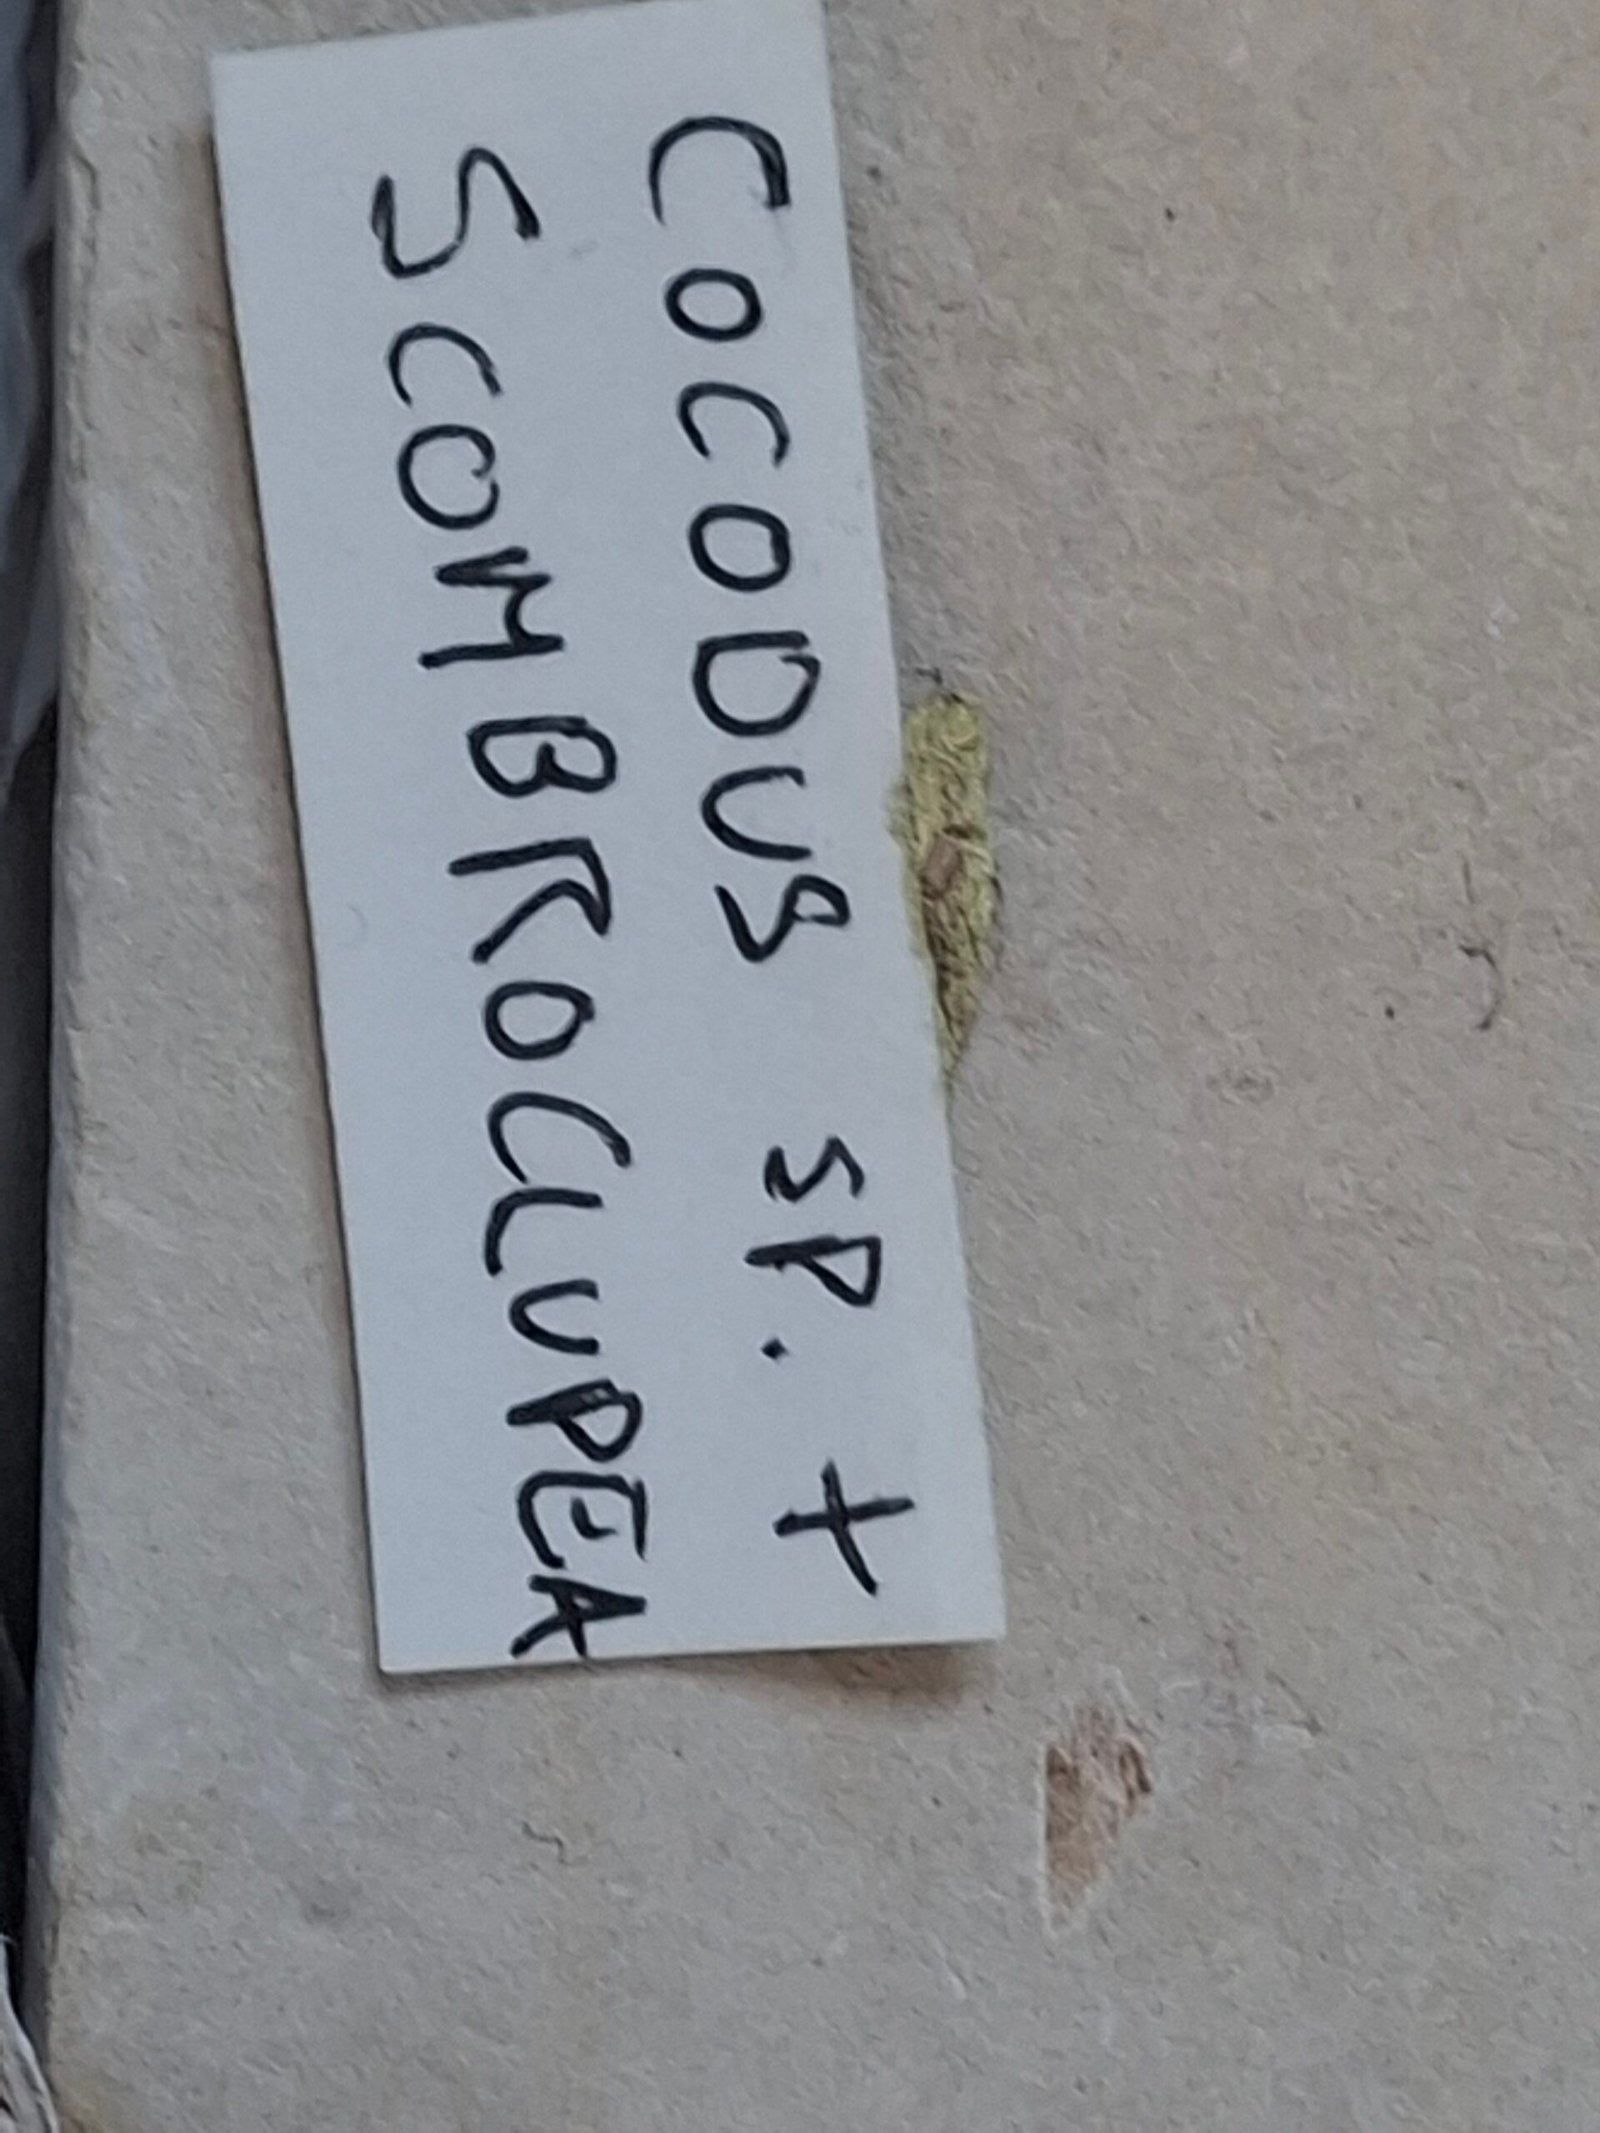 COCODUS SP. +
SCOMBROCLUPEA